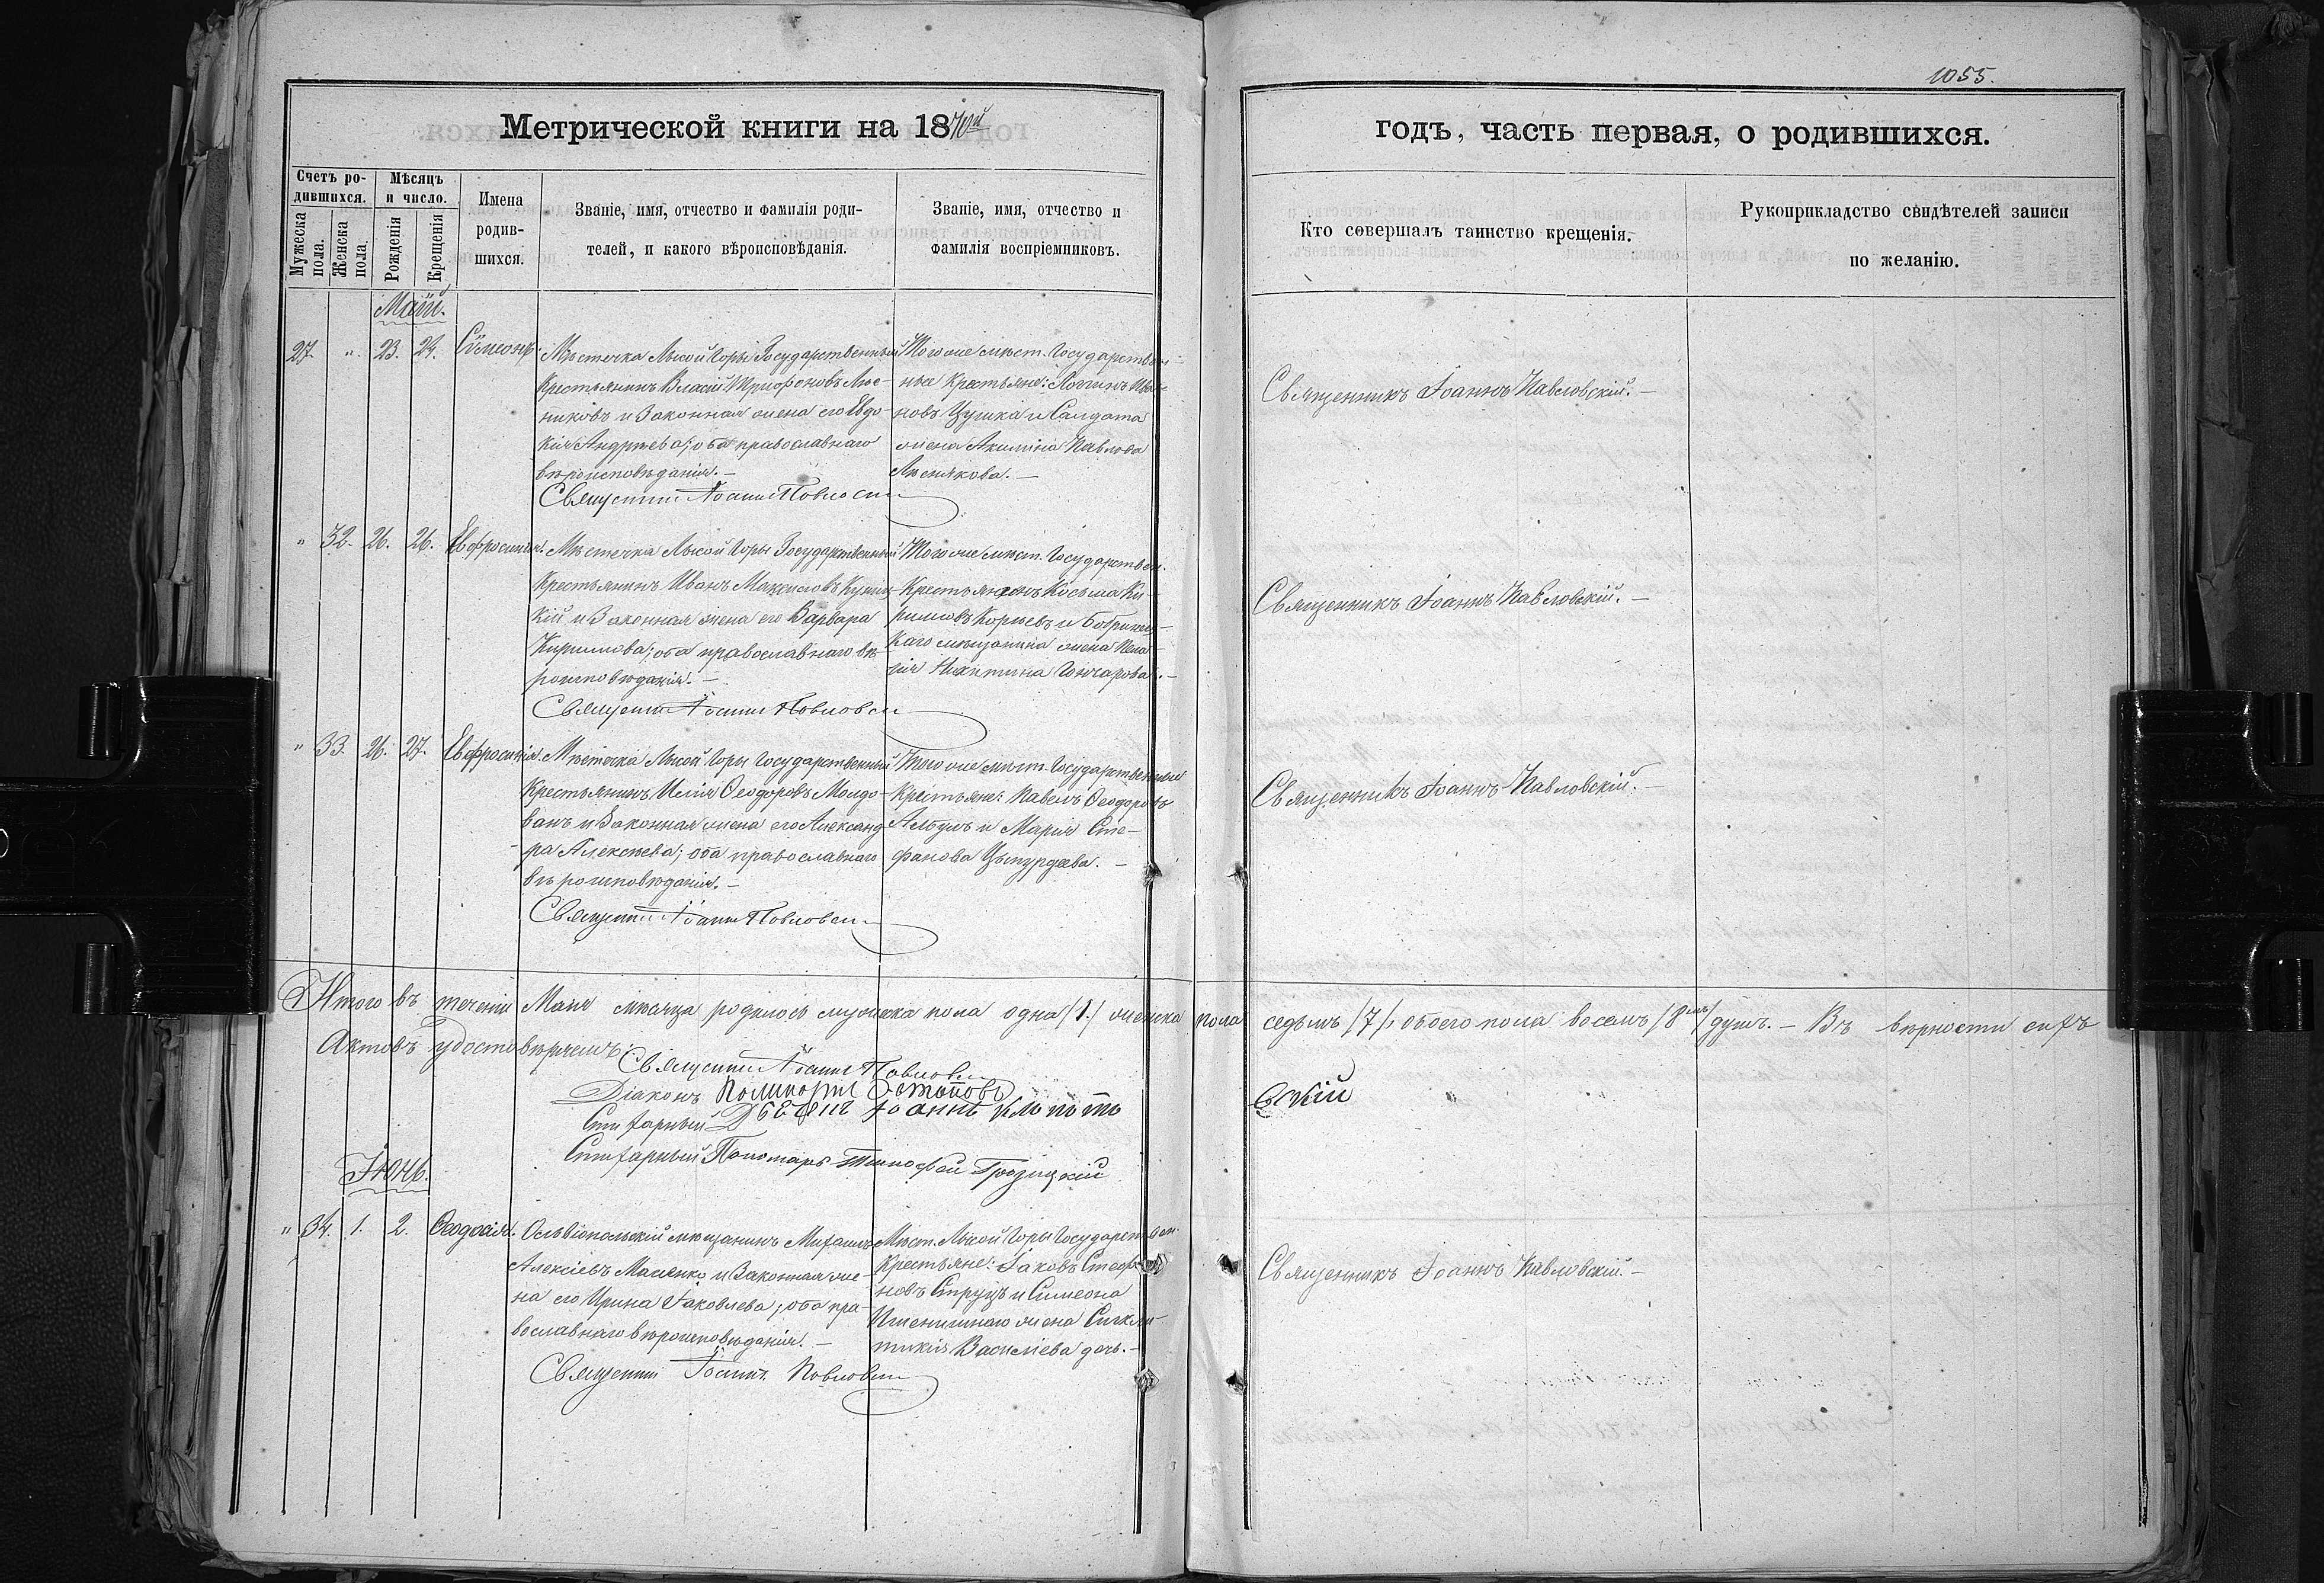 1055.
Метрической книги на 1870й
годъ, часть первая, о родившихся.
Счетъ ро-
дившихся.
Мужеска пола.
Женска пола.
Мѣсяцъ
и число.
Рожденія
Крещенія
Имена
родив-
шихся.
Званіе, имя, отчество и фамилія роди-
телей, и какого вѣроисповѣданія.
Званіе, имя, отчество и
фамилія воспріемниковъ.
Кто совершалъ таинство крещенія.
Рукоприкладство свидѣтелей записи
по желанію.
Май.
27. " 23. 24. Сѵмеонъ.
Мѣстечка Лысой Горы Государственный
Крестьянинъ Власій Трифоновъ
и Законная жена его Евдо-
кія Андреева; оба православнаго
вѣроисповѣданія.-
Того же мѣст. Государствен-
ные Крестьяне: Логгинъ Ива-
новъ Цушка и Салдата
жена Акилина Павлова
Лѣснякова.-
Священникъ Іоаннъ Павловскій.-
" 32. 26. 26. Евфросинія.
Мѣстечка Лысой Горы Государственный
Крестьянинъ Иванъ Максимовъ
и Законная жена его Варвара
Кирилова; оба православнаго вѣ-
роисповѣданія.-
Того же мѣст. Государствен.
Крестьянинъ Косьма Ки-
риловъ Корневъ и
каго мѣщанина жена Пела-
гія Никитина Гончарова.-
Священникъ Іоаннъ Павловскій.-
" 33. 26. 27. Евфросинія.
Мѣстечка Лысой Горы Государственный
Крестьянинъ Илія Ѳеодоровъ Молдо-
ванъ и Законная жена его Александ-
ра Алексѣева; оба православнаго
вѣроисповѣданія.-
Того же мѣст. Государственные
Крестьяне: Павелъ Ѳеодоровъ
Албулъ и Марія Сте-
фанова Цыпурдеева.-
Священникъ Іоаннъ Павловскій.-
Итого въ теченіи Маія мѣсяца родилось мужеска пола одна /1./ женска пола седьмъ /7/, обоего пола восемъ /8мь/ душъ.- Въ вѣрности сихъ
Актовъ удостовѣряемъ:
Священникъ Іоаннъ Павловскій
Діаконъ Поликарпъ Остаповъ
Стихарный Дьячекъ Іоаннъ
Стихарный Пономарь Тимофей Грозицкій
Іюнь.
" 34. 1. 2. Ѳеодосія.
Ольвіопольскій мѣщанинъ Михаилъ
Алексіевъ Масленко и Законная же-
на его Ирина Іаковлева; оба пра-
вославнаго вѣроисповѣданія.-
Мѣст. Лысой Горы Государствен.
Крестьяне: Іаковъ Стефа-
новъ Струцъ и Симеона
Пшеничнаго жена Сигкли-
тикія Василіева дочь.-
Священникъ Іоаннъ Павловскій.-